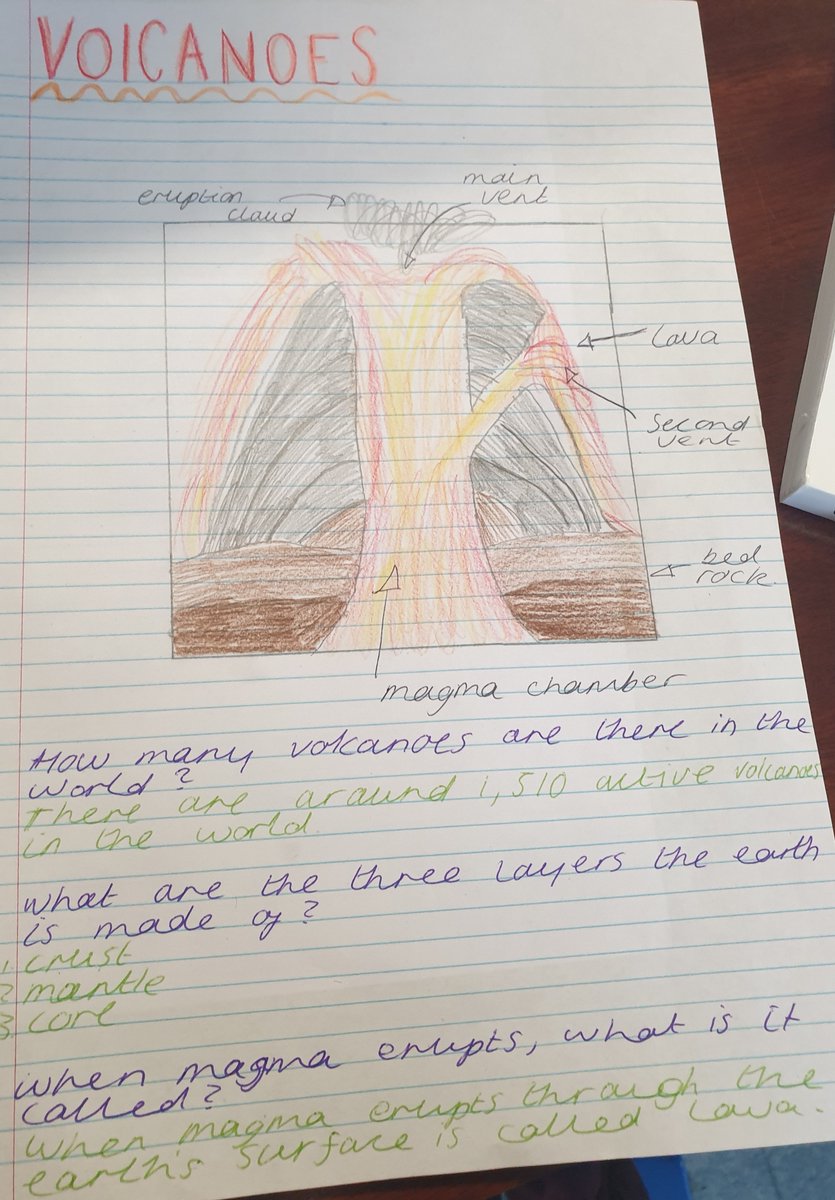 VOLCANOES
eruption
cloud
main
vent
Lava
second
vent
bed
rock.
magma chamber
How many volcanoes are there in the
world?
There are around 1,510 active volcanoes
in the world.
What are the three layers the earth
is made of?
1. crust
2. mantle
3. core
When magma erupts, what is it
called?
When magma erupts through the
earth's surface is called lava.